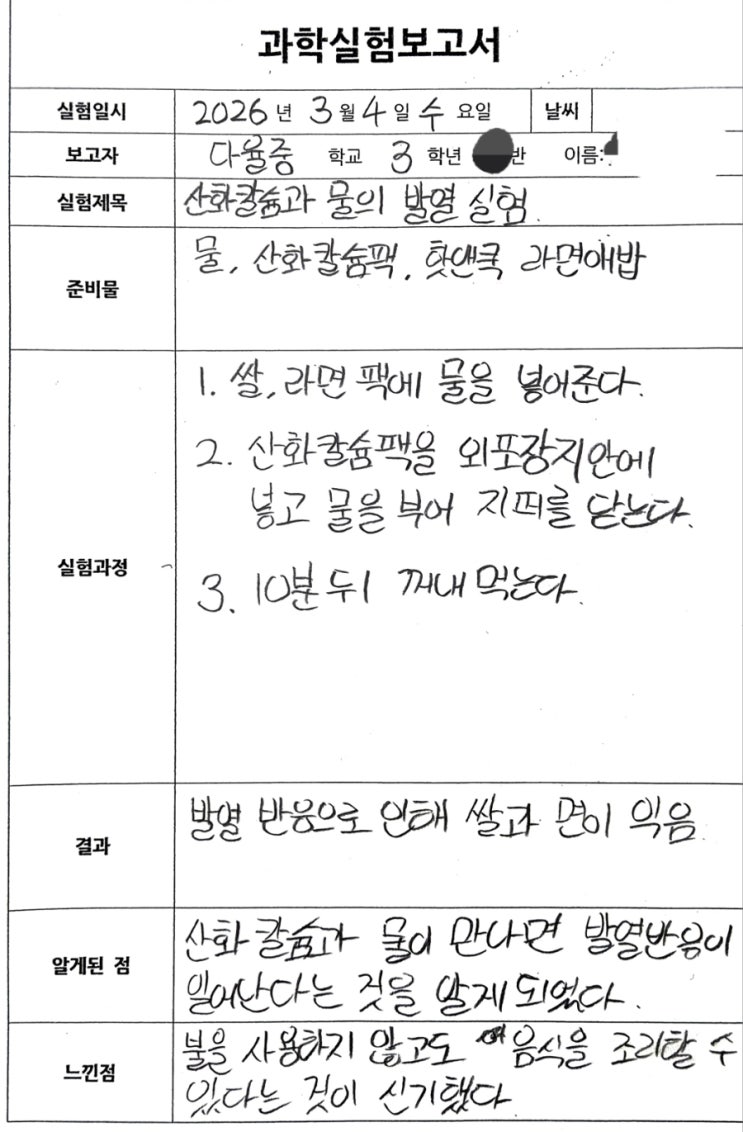 과학실험보고서
실험일시 2026 년 3 월 4 일 수 요일 날씨
보고자 다율중 학교 3 학년 반 이름:
실험제목 산화칼슘과 물의 발열 실험
준비물 물, 산화칼슘팩, 핫앤쿡 라면애밥
실험과정
1. 쌀, 라면 팩에 물을 넣어준다.
2. 산화칼슘팩을 외포장지안에
넣고 물을 부어 지퍼를 닫는다.
3. 10분 뒤 꺼내 먹는다.
결과 발열 반응으로 인해 쌀과 면이 익음
알게된 점
산화칼슘과 물이 만나면 발열반응이
일어난다는 것을 알게 되었다.
느낀점
불을 사용하지 않고도 음식을 조리할 수
있다는 것이 신기했다